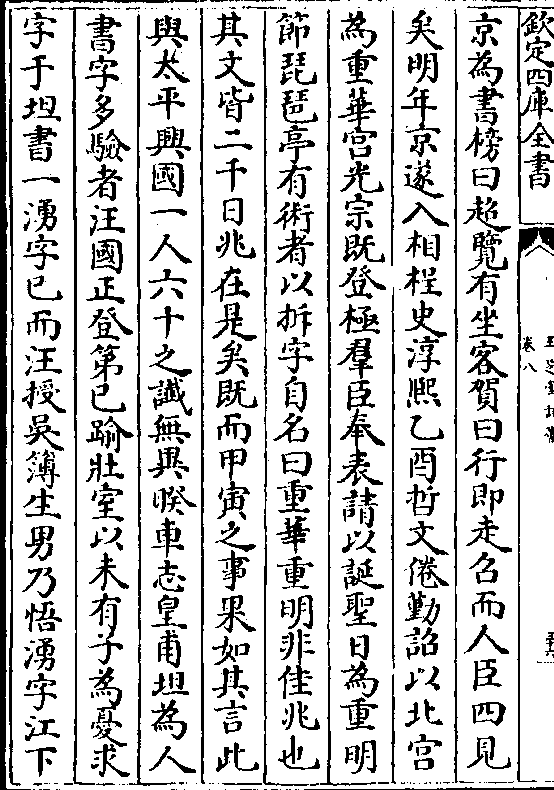 欽定四庫全書
卷八
京為書榜曰超覽有坐客賀曰行即走召而人臣四見
矣明年京遂入相桯史淳熙乙酉哲文倦勤詔以北宫
為重華宫光宗既登極羣臣奉表請以誕聖日為重明
節琵琶亭有術者以拆字自名曰重華重明非佳兆也
其文皆二千日兆在是矣既而甲寅之事果如其言此
與太平興國一人六十之讖無異暌車志皇甫坦為人
書字多驗者汪國正登第已踰壯室以未有子為憂求
字于坦書一湧字已而汪授吳簿生男乃悟湧字江下